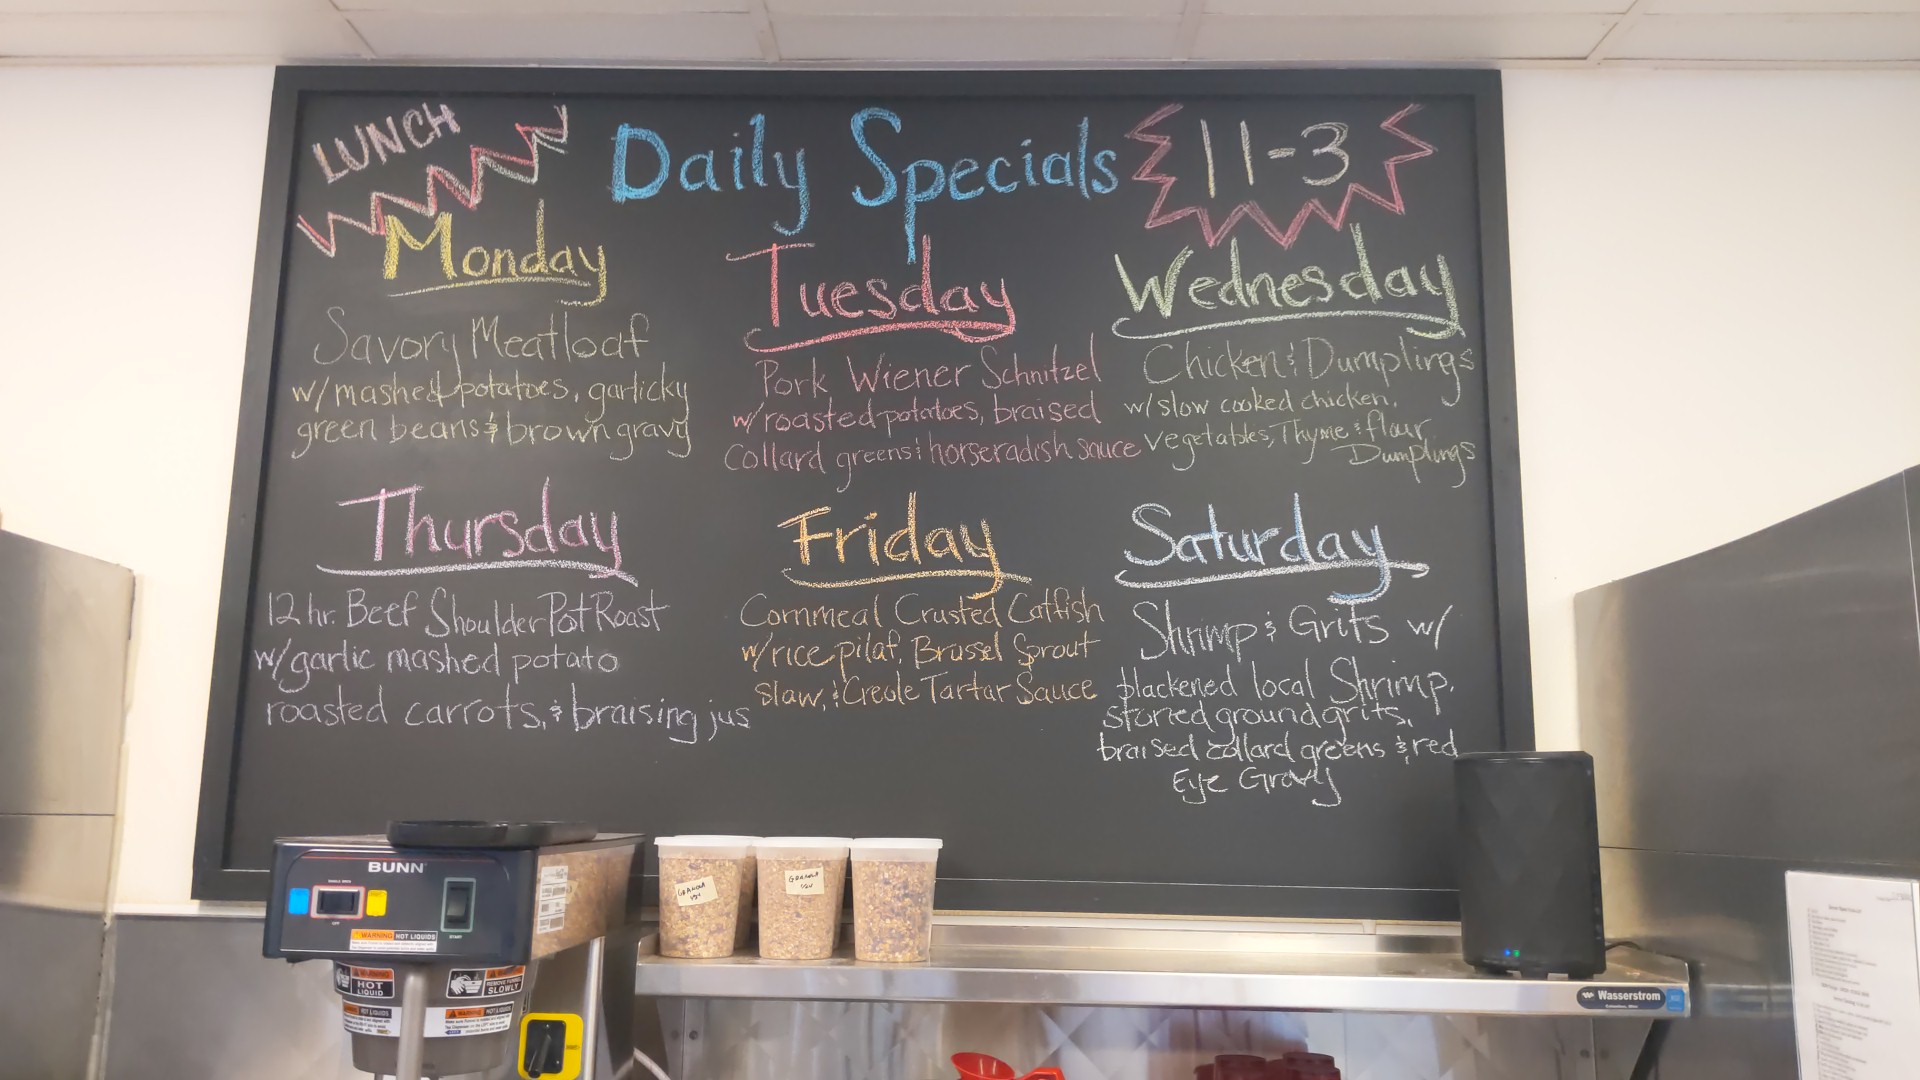 LUNCH
Daily Specials
11-3
Monday
Savory Meatloaf
w/mashed potatoes, garlicky
green beans & brown gravy
Tuesday
Pork Wiener Schnitzel
w/roasted potatoes, braised
Collard greens & horseradish sauce
Wednesday
Chicken & Dumplings
w/slow cooked chicken,
vegetables, Thyme & flour
Dumplings
Thursday
12 hr. Beef Shoulder Pot Roast
w/garlic mashed potato
roasted carrots, & braising jus
Friday
Cornmeal Crusted Catfish
w/rice pilaf, Brussel Sprout
slaw, & Creole Tartar Sauce
Saturday
Shrimp & Grits w/
blackened local Shrimp,
stoned ground grits,
braised collard greens & red
Eye Gravy
BUNN
OFF
START
WARNING HOT LIQUIDS
WARNING
HOT
LIQUID
WARNING
REMOVE FUNNEL
SLOWLY
HOT LIQUIDS
WARNING HOT LIQUIDS
GRANOLA
GRANOLA
Wasserstrom